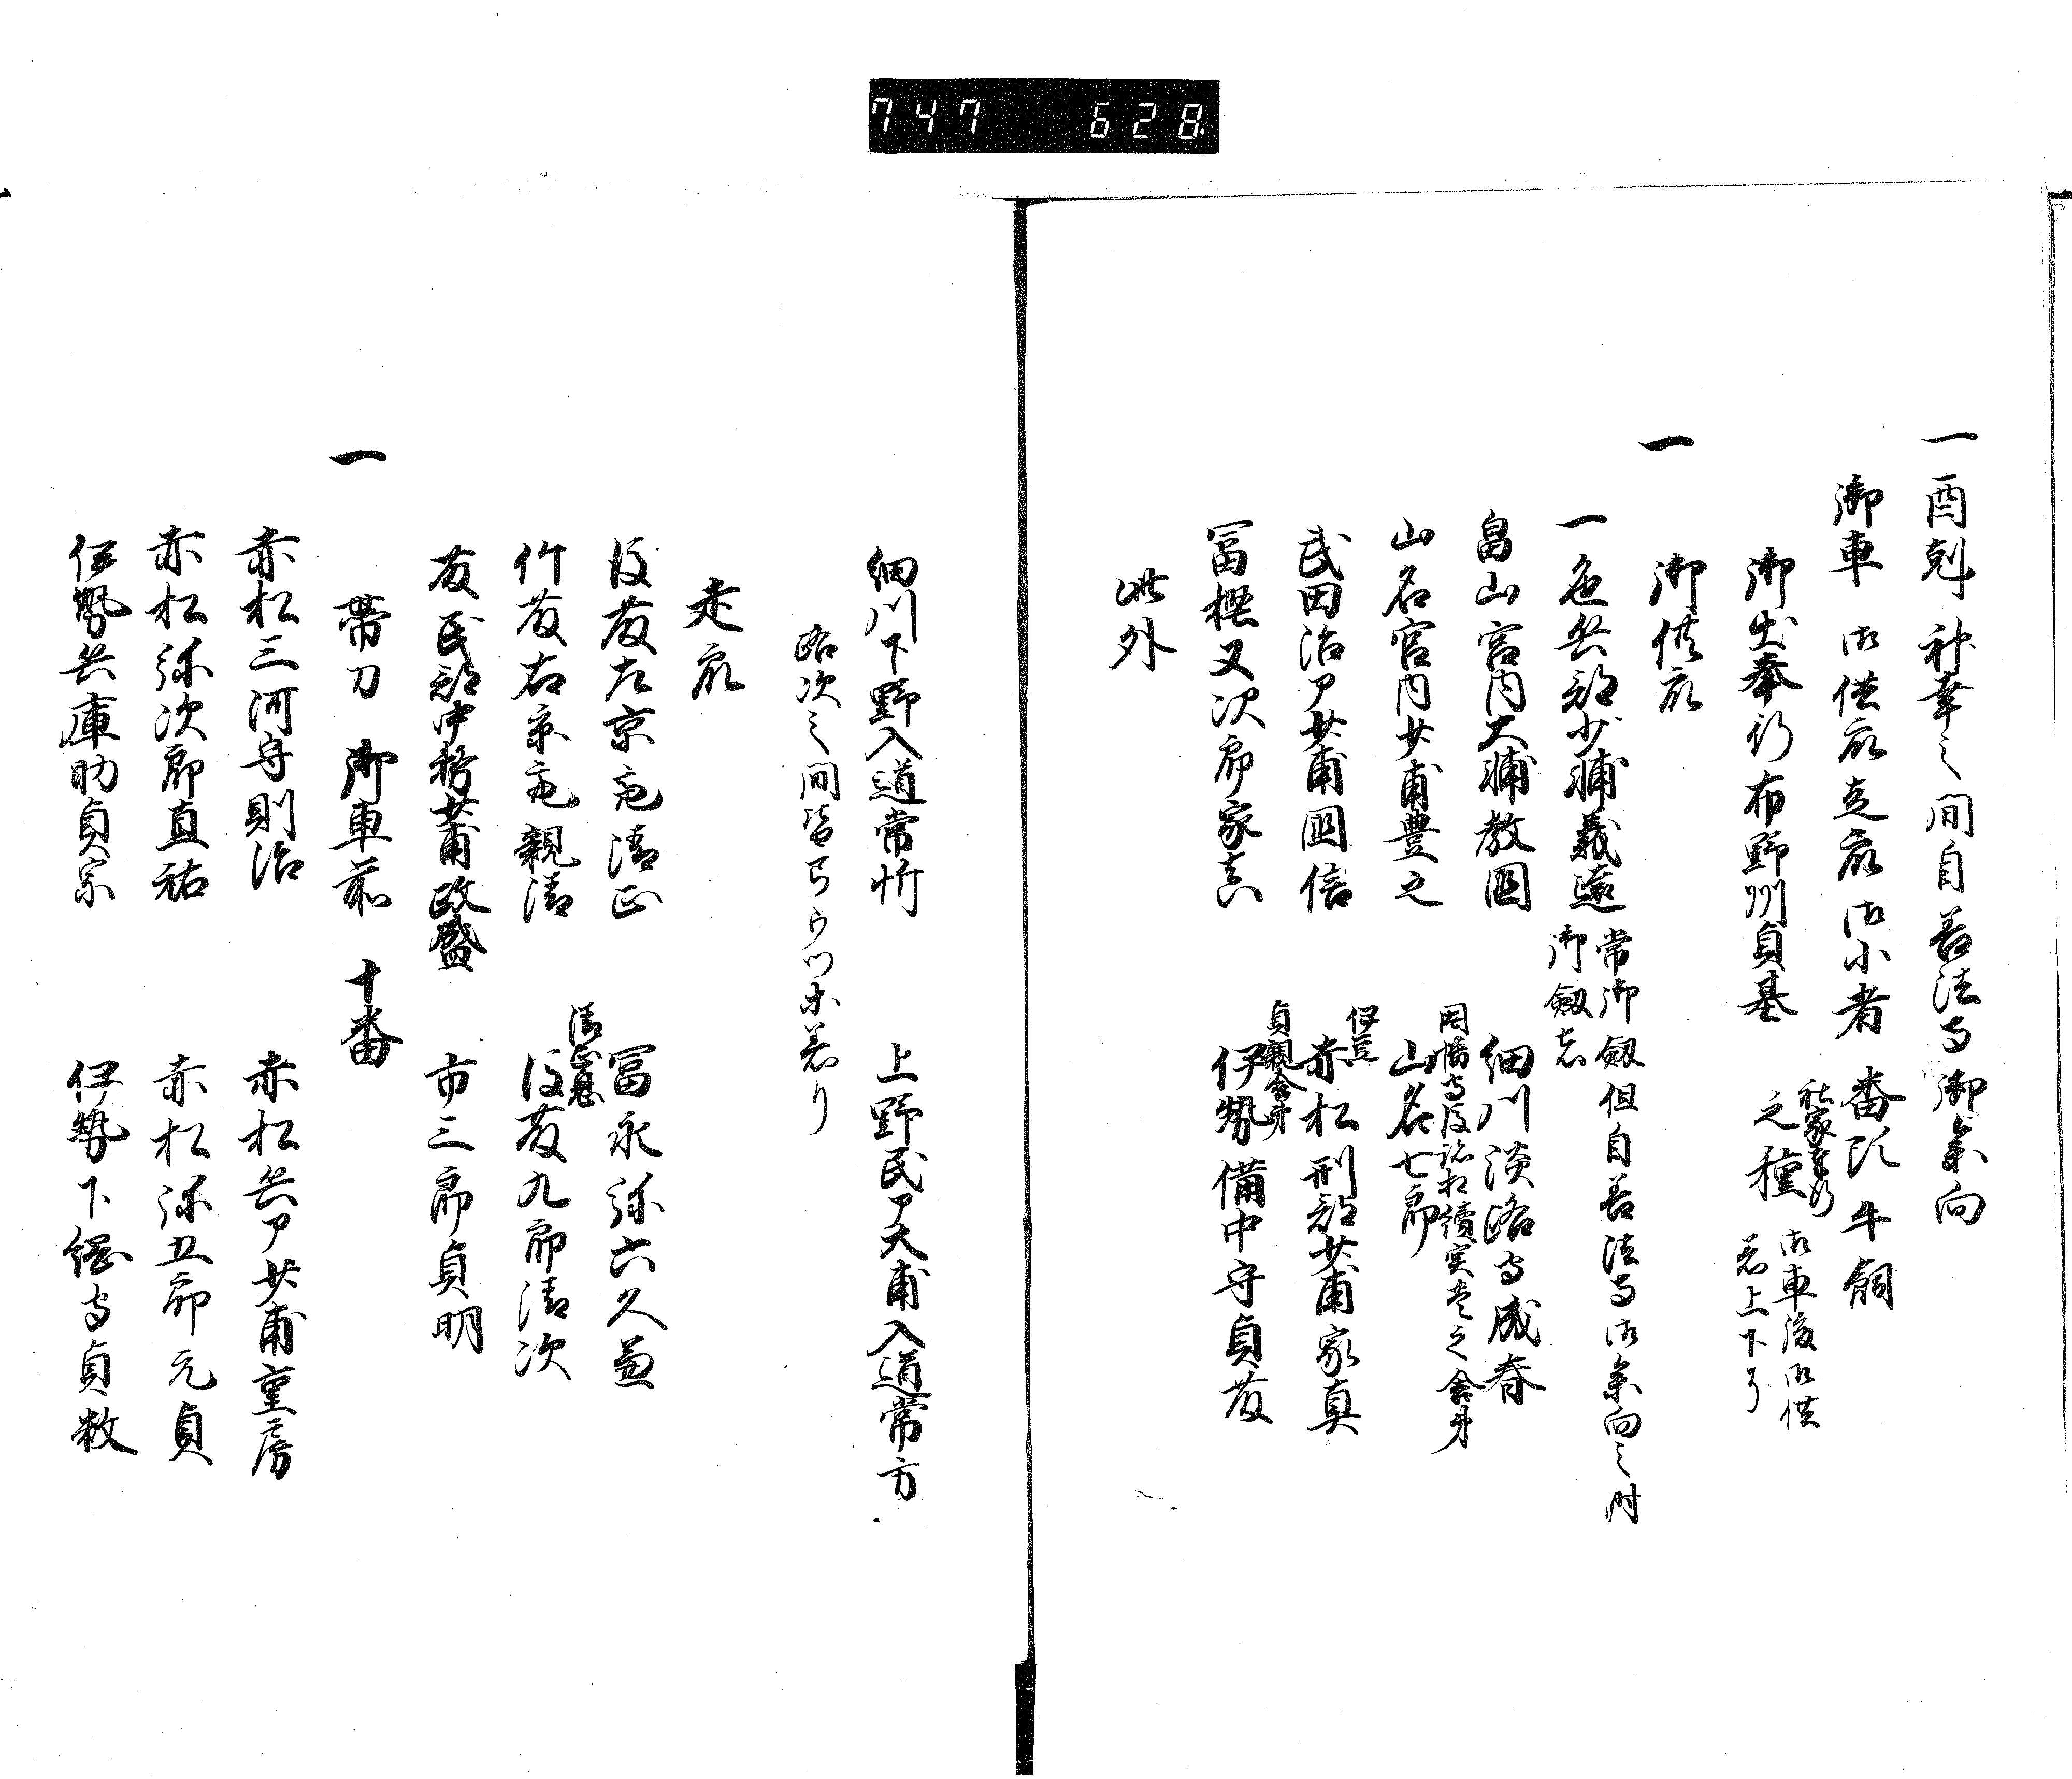 747 628
一酉剋神幸之間自善法寺御参向
御車 御供衆走衆御小者 番頭牛飼
御出奉行布野州貞基
社家奉行
之種
御車後御供
着上下了
一 御供衆
一色兵部少輔義遠
常御劔但自善法寺御参向之時
御劔者
畠山宮内大輔教国
細川淡路守成春
山名宮内少甫豊之
因幡守
山名七郎
武田治ア少甫国信
伊豆
赤松刑部少甫家真
冨樫又次郎家喜
貞親舎弟
伊勢備中守貞藤
此外
細川下野入道常忻
上野民ア大甫入道常方
路次之間皆弓
走衆
後藤左京亮清正
冨永弥六久兼
竹藤右京亮親清
清正息
後藤九郎清次
藤民部中務少甫政盛
市三郎貞明
一 帯刀 御車前 十番
赤松三河守則治
赤松兵ア少甫重房
赤松弥次郎直祐
赤松弥五郎元貞
伊勢兵庫助貞宗
伊勢下総守貞牧